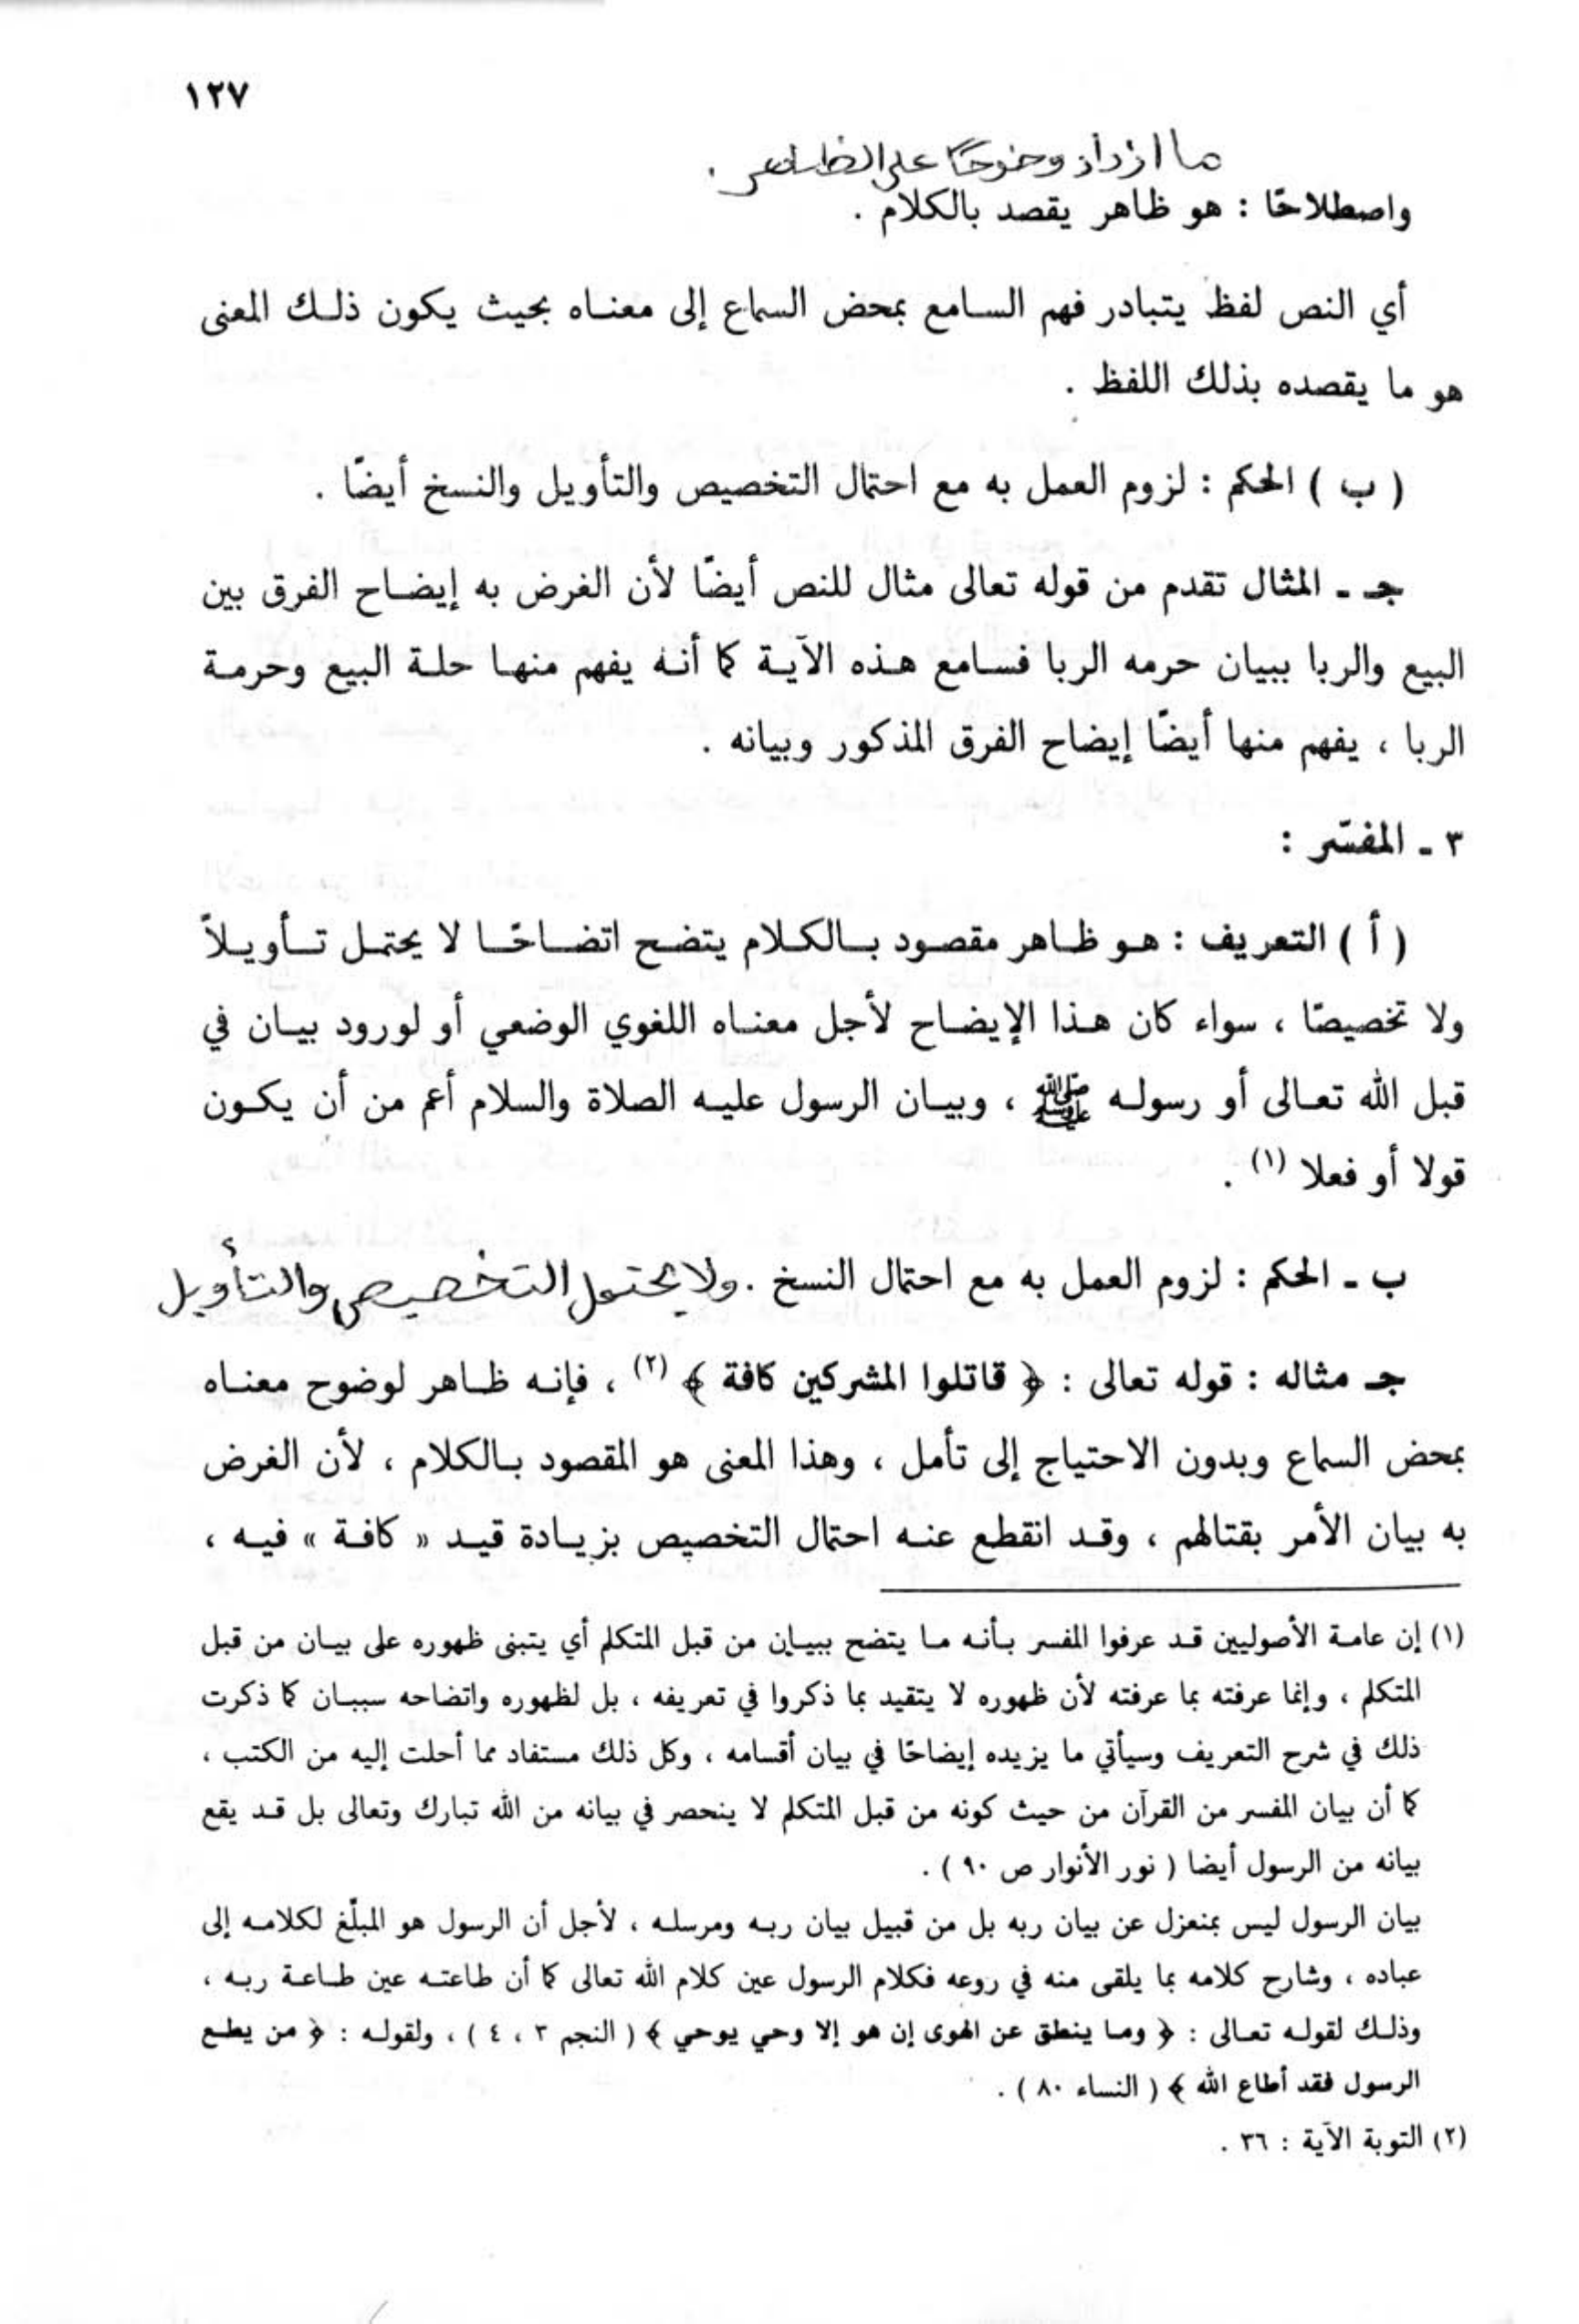 ١٢٧
ما ازداد وضوحًا على الظاهر .
واصطلاحًا : هو ظاهر يقصد بالكلام .
أي النص لفظ يتبادر فهم السامع بمحض السماع إلى معناه بحيث يكون ذلك المعنى
هو ما يقصده بذلك اللفظ .
( ب ) الحكم : لزوم العمل به مع احتمال التخصيص والتأويل والنسخ أيضًا .
جـ ـ المثال تقدم من قوله تعالى مثال للنص أيضًا لأن الغرض به إيضاح الفرق بين
البيع والربا ببيان حرمه الربا فسامع هذه الآية كما أنه يفهم منها حلة البيع وحرمة
الربا ، يفهم منها أيضًا إيضاح الفرق المذكور وبيانه .
٣ ـ المفسّر :
( أ ) التعريف : هو ظاهر مقصود بالكلام يتضح اتضاحًا لا يحتمل تأويلاً
ولا تخصيصًا ، سواء كان هذا الإيضاح لأجل معناه اللغوي الوضعي أو لورود بيان في
قبل الله تعالى أو رسوله ﷺ ، وبيان الرسول عليه الصلاة والسلام أعم من أن يكون
قولا أو فعلا (١) .
ب ـ الحكم : لزوم العمل به مع احتمال النسخ . ولا يحتمل التخصيص والتأويل
جـ مثاله : قوله تعالى : ﴿ قاتلوا المشركين كافة ﴾ (٢) ، فإنه ظاهر لوضوح معناه
بمحض السماع وبدون الاحتياج إلى تأمل ، وهذا المعنى هو المقصود بالكلام ، لأن الغرض
به بيان الأمر بقتالهم ، وقد انقطع عنه احتمال التخصيص بزيادة قيد « كافة » فيه ،
(١) إن عامة الأصوليين قد عرفوا المفسر بأنه ما يتضح ببيان من قبل المتكلم أي يتبنى ظهوره على بيان من قبل
المتكلم ، وإنما عرفته بما عرفته لأن ظهوره لا يتقيد بما ذكروا في تعريفه ، بل لظهوره واتضاحه سببان كما ذكرت
ذلك في شرح التعريف وسيأتي ما يزيده إيضاحًا في بيان أقسامه ، وكل ذلك مستفاد مما أحلت إليه من الكتب ،
كما أن بيان المفسر من القرآن من حيث كونه من قبل المتكلم لا ينحصر في بيانه من الله تبارك وتعالى بل قد يقع
بيانه من الرسول أيضا ( نور الأنوار ص ٩٠ ) .
بيان الرسول ليس بمنعزل عن بيان ربه بل من قبيل بيان ربه ومرسله ، لأجل أن الرسول هو المبلّغ لكلامه إلى
عباده ، وشارح كلامه بما يلقى منه في روعه فكلام الرسول عين كلام الله تعالى كما أن طاعته عين طاعة ربه ،
وذلك لقوله تعالى : ﴿ وما ينطق عن الهوى إن هو إلا وحي يوحي ﴾ ( النجم ٣ ، ٤ ) ، ولقوله : ﴿ من يطع
الرسول فقد أطاع الله ﴾ ( النساء ٨٠ ) .
(٢) التوبة الآية : ٣٦ .